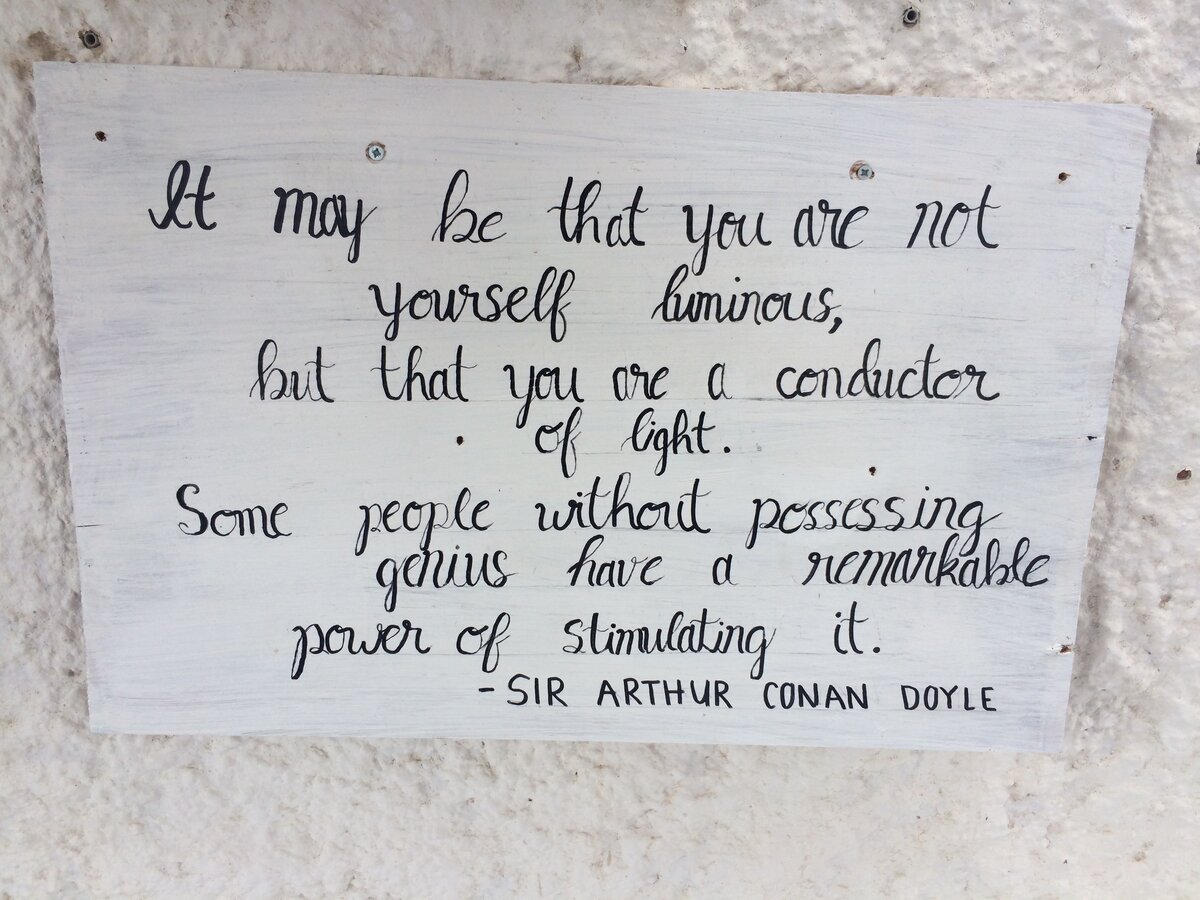 It may be that you are not
yourself luminous,
but that you are a conductor
of light.
Some people without possessing
genius have a remarkable
power of stimulating it.
- SIR ARTHUR CONAN DOYLE